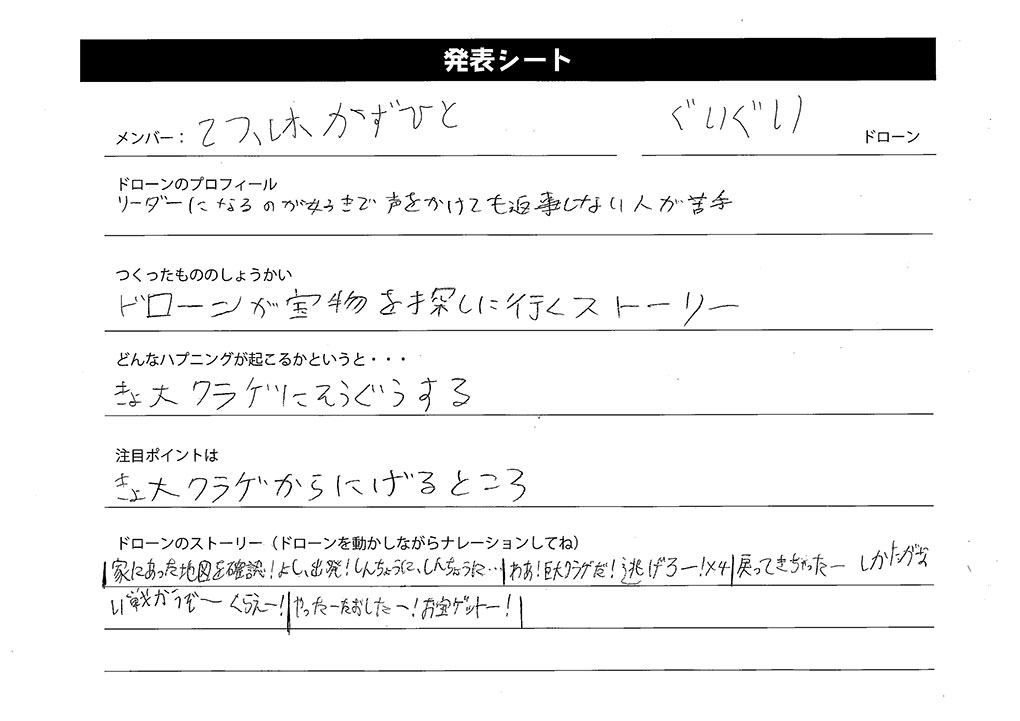 発表シート
メンバー： てつ、しほ、かずひと ぐいぐい ドローン
ドローンのプロフィール
リーダーになるのが好きで声をかけても返事しない人が苦手
つくったもののしょうかい
ドローンが宝物を探しに行くストーリー
どんなハプニングが起こるかというと・・・
きょ大クラゲにそうぐうする
注目ポイントは
きょ大クラゲからにげるところ
ドローンのストーリー（ドローンを動かしながらナレーションしてね）
家にあった地図を確認！よし、出発！しんちょうに、しんちょうに…|わあ！巨大クラゲだ！逃げろー！×4|戻ってきちゃったー しかたがな
い戦がうぞ〜くらえー！|やったーたおしたー！お宝ゲットー！|